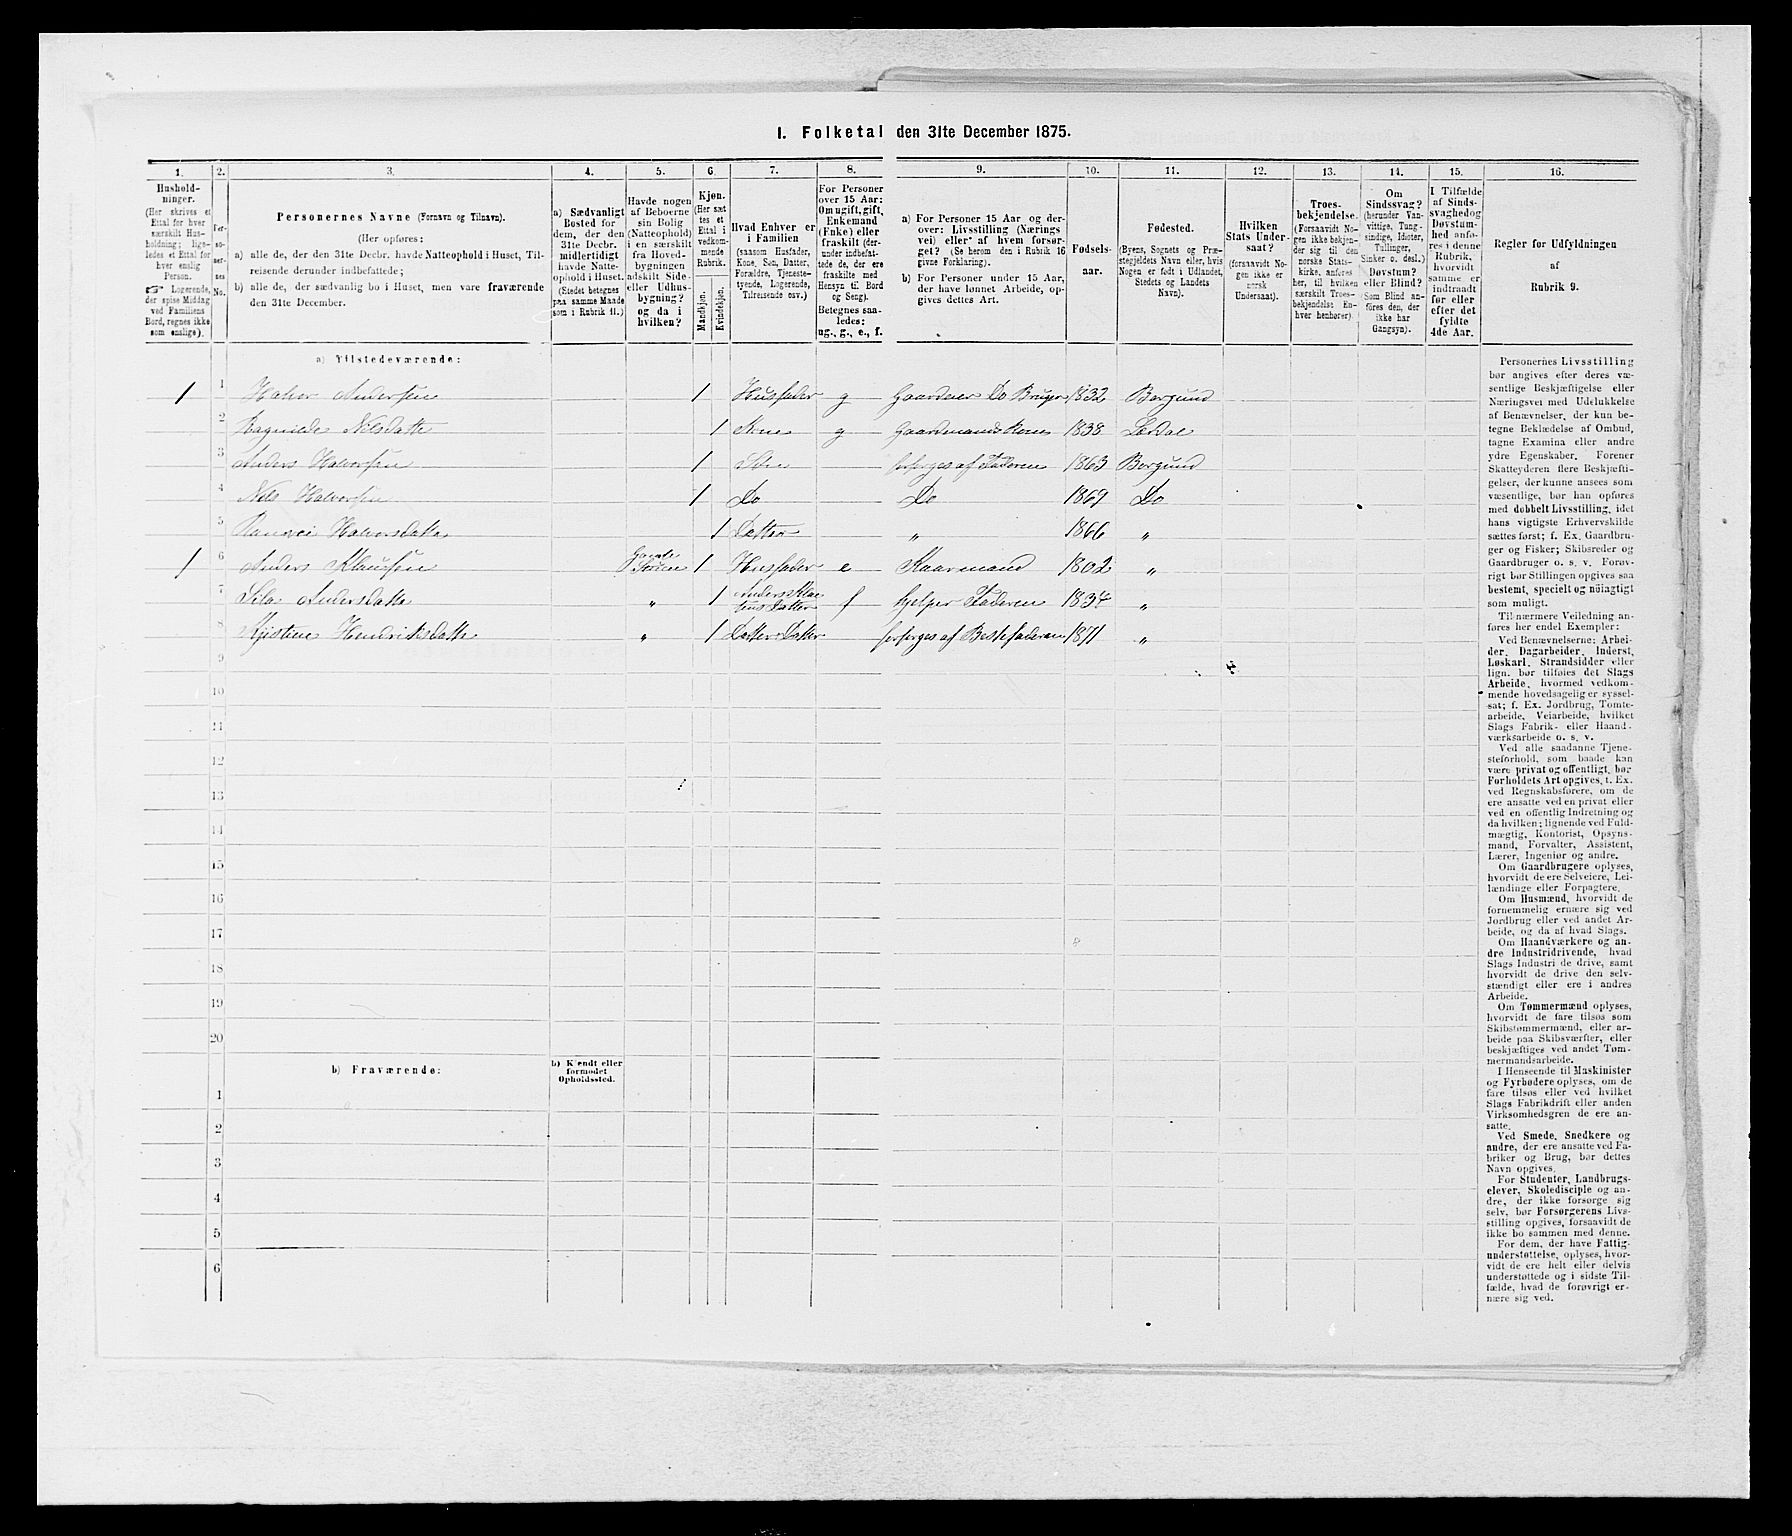 I. Folketal den 31te December 1875.
1. 2. 3. 4. 5. 6. 7. 8. 9. 10. 11. 12. 13. 14. 15. 16.
Hushold-
ninger.
(Her skrives et
Ettal for hver
særskilt Hus-
holdning; lige-
ledes et Ettal for
hver enslig
Person.
☞ Logerende,
der spise Middag
ved Familiens
Bord, regnes ikke
som enslige).
Per-
so-
ner-
nes
No.
Personernes Navne (Fornavn og Tilnavn).
(Her opføres:
a) alle de, der den 31te Decbr. havde Natteophold i Huset, Til-
reisende derunder indbefattede;
b) alle de, der sædvanlig bo i Huset, men vare fraværende
den 31te December.
a) Sædvanligt
Bosted for
dem, der den
31te Decbr.
midlertidigt
havde Natte-
ophold i Huset.
(Stedet betegnes
paa samme Maade
som i Rubrik 11.)
Havde nogen
af Beboerne
sin Bolig
(Natteophold)
i en særskilt
fra Hoved-
bygningen
adskilt Side-
eller Udhus-
bygning?
og da i
hvilken?
Kjøn.
(Her sæt
tes et
Ettal i
vedkom-
mende
Rubrik.
Mandkjøn.
Kvindekjøn.
Hvad Enhver er
i Familien
(saasom Husfader,
Kone, Søn, Datter,
Forældre, Tjeneste-
tyende, Logerende,
Tilreisende osv.)
For Personer
over 15 Aar:
Om ugift, gift,
Enkemand
(Enke) eller
fraskilt (der-
under indbefat-
tede de, der ere
fraskilte med
Hensyn til Bord
og Seng).
Betegnes saa-
ledes:
ug., g., e., f.
a) For Personer 15 Aar og der-
over: Livsstilling (Nærings
vei) eller af hvem forsør-
get? (Se herom den i Rubrik 16
givne Forklaring).
b) For Personer under 15 Aar,
der have lønnet Arbeide, op-
gives dettes Art.
Fødsels-
aar.
Fødested.
(Byens, Sognets og Præ-
stegjeldets Navn eller, hvis
Nogen er født i Udlandet,
Stedets og Landets
Navn).
Hvilken
Stats Under-
saat?
(forsaavidt No-
gen ikke er
norsk
Undersaat).
Troes-
bekjendelse.
(Forsaavidt No-
gen ikke bekjen-
der sig til den
norske Stats-
kirke, anføres
her, til hvilken
særskilt Troes-
bekjendelse En-
hver henhører).
Om
Sindssvag?
(herunder Van-
vittige, Tung-
sindige, Idioter,
Tullinger,
Sinker o. desl.)
Døvstum?
eller Blind?
Som Blind an-
føres den, der
ikke har
Gangsyn).
I Tilfælde
af Sinds-
svaghed og
Døvstum-
hed anfø-
res i denne
Rubrik,
hvorvidt
samme er
indtraadt
før eller
efter det
fyldte
4de Aar.
Regler for Udfyldningen
af
Rubrik 9.
a) Tilstedeværende:
1 1 Halvor Andersen 1 Husfader g Gaardeier Do Bruger 1832 Borgund
2 Ragnilde Nilsdatte 1 Kone g Gaardmands Kone 1838 Lærdal
3 Anders Halvorsen 1 Søn forsørges af Faderen 1863 Borgund
4 Nils Halvorsen 1 Do Do 1869 Do
5 Halvorsdatte 1 Datter „ 1866 „
1 6 Anders Klausen Gamle 1 Husfader e Kaarmand 1802 „
7 Sila Andersdatte „ 1 Anders Klau
sens Datter f hjelper Faderen 1834 „
8 Kjistine Hendriksdatte „ 1 Datter Datter forsørges af Bestefaderen 1871 „
9
10
11
12
13
14
15
16
17
18
19
20
b) Fraværende:
b) Kjendt eller
formodet
Opholdssted.
1
2
3
4
5
6
Personernes Livsstilling
bør angives efter deres væ-
sentlige Beskjæftigelse eller
Næringsvei med Udelukkelse
af Benævnelser, der kun be-
tegne Beklædelse af Ombud,
tagne Examina eller andre
ydre Egenskaber. Forener
Skatteyderen flere Beskjæfti-
gelser, der kunne ansees som
væsentlige, bør han opføres
med dobbelt Livsstilling, idet
hans vigtigste Erhvervskilde
sættes først; f. Ex. Gaardbru-
ger og Fisker; Skibsreder og
Gaardbruger o. s. v. Forøv-
rigt bør Stillingen opgives saa
bestemt, specielt og nøiagtigt
som muligt.
Til nærmere Veiledning an-
føres her endel Exempler:
Ved Benævnelserne: Arbei-
der, Dagarbeider, Inderst,
Løskarl, Strandsidder eller
lign. bør tilføies det Slags
Arbeide, hvormed vedkom-
mende hovedsagelig er syssel-
sat; f. Ex. Jordbrug, Tomte-
arbeide, Veiarbeide, hvilket
Slags Fabrik- eller Haand-
værksarbeide o. s. v.
Ved alle saadanne Tjene-
steforhold, som baade kan
være privat og offentligt, bør
Forholdets Art opgives, f. Ex.
ved Regnskabsførere, om de
ere ansatte ved en privat eller
ved en offentlig Indretning og
da hvilken; lignende ved Fuld-
mægtig, Kontorist, Opsyns-
mand, Forvalter, Assistent,
Lærer, Ingeniør og andre.
Om Gaardbrugere oplyses,
hvorvidt de ere Selveiere, Lei-
lændinge eller Forpagtere.
Om Husmænd, hvorvidt de
fornemmelig ernære sig ved
Jordbrug eller ved andet Ar-
beide, og da af hvad Slags.
Om Haandværkere og an-
dre Industridrivende, hvad
Slags Industri de drive, samt
hvorvidt de drive den selv-
stændigt eller ere i andres
Arbeide.
Om Tømmermænd oplyses,
hvorvidt de fare tilsøs som
Skibstømmermænd, eller ar-
beide paa Skibsværfter, eller
beskjæftiges ved andet Tøm-
mermandsarbeide.
I Henseende til Maskinister
og Fyrbødere oplyses, om de
fare tilsøs eller ved hvilket
Slags Fabrikdrift eller anden
Virksomhedsgren de ere an-
satte.
Ved Smede, Snedkere og
andre, der ere ansatte ved Fa-
briker og Brug, bør dettes
Navn opgives.
For Studenter, Landbrugs-
elever, Skoledisciple og an-
dre, der ikke forsørge sig
selv, bør Forsørgerens Livs-
stilling opgives, forsaavidt de
ikke bo sammen med denne.
For dem, der have Fattig-
understøttelse, oplyses, hvor-
vidt de ere helt eller delvis
understøttede og i sidste Til-
fælde, hvad de forøvrigt er-
nære sig ved.